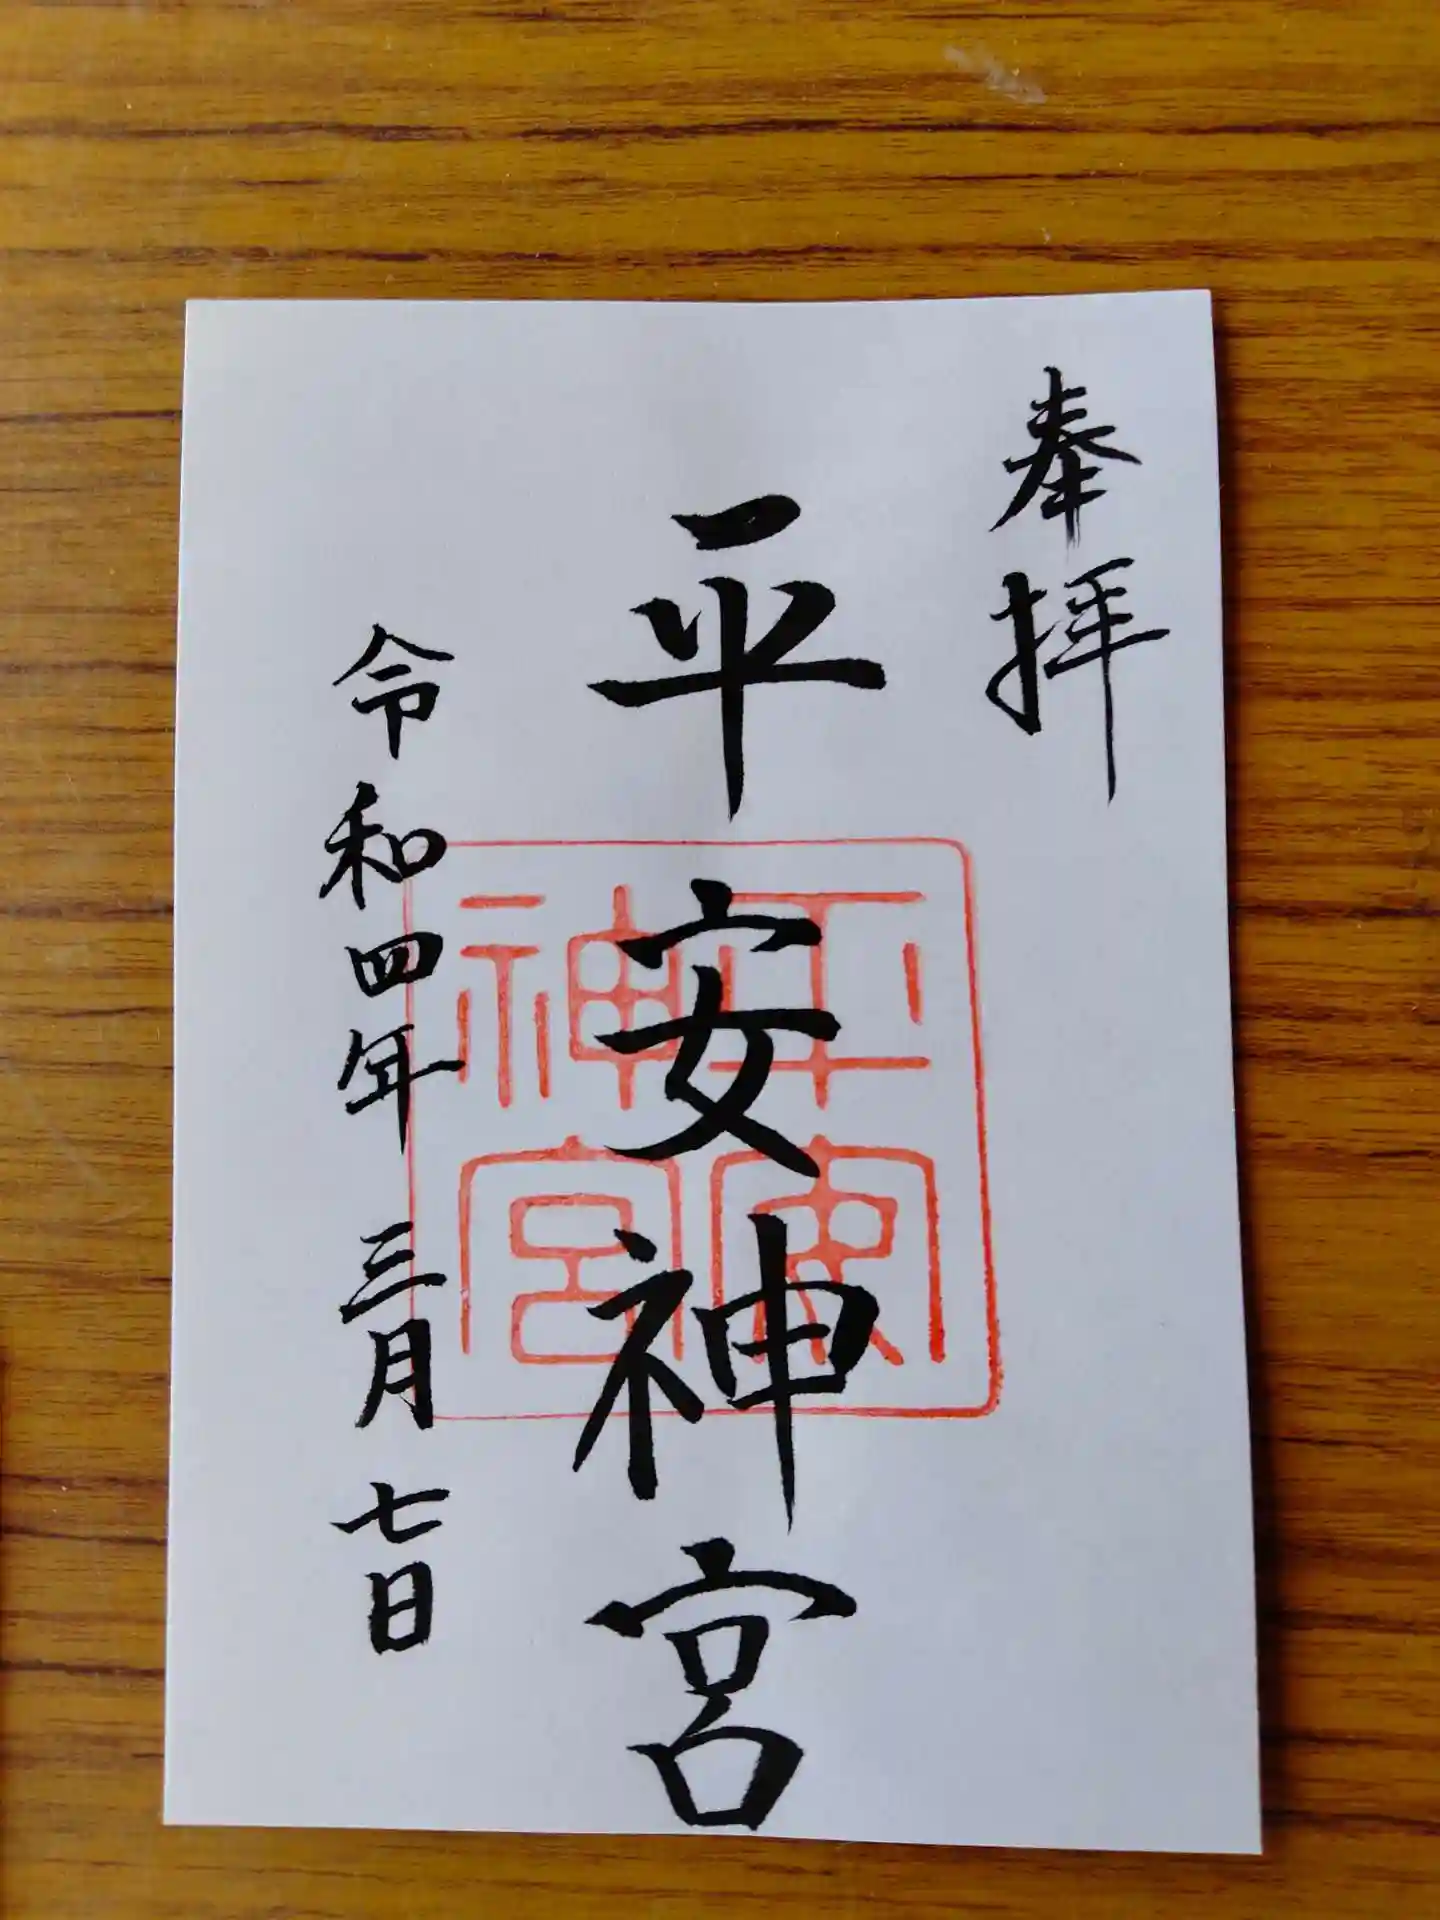 奉拝
平安神宮
平安神宮
令和四年三月七日